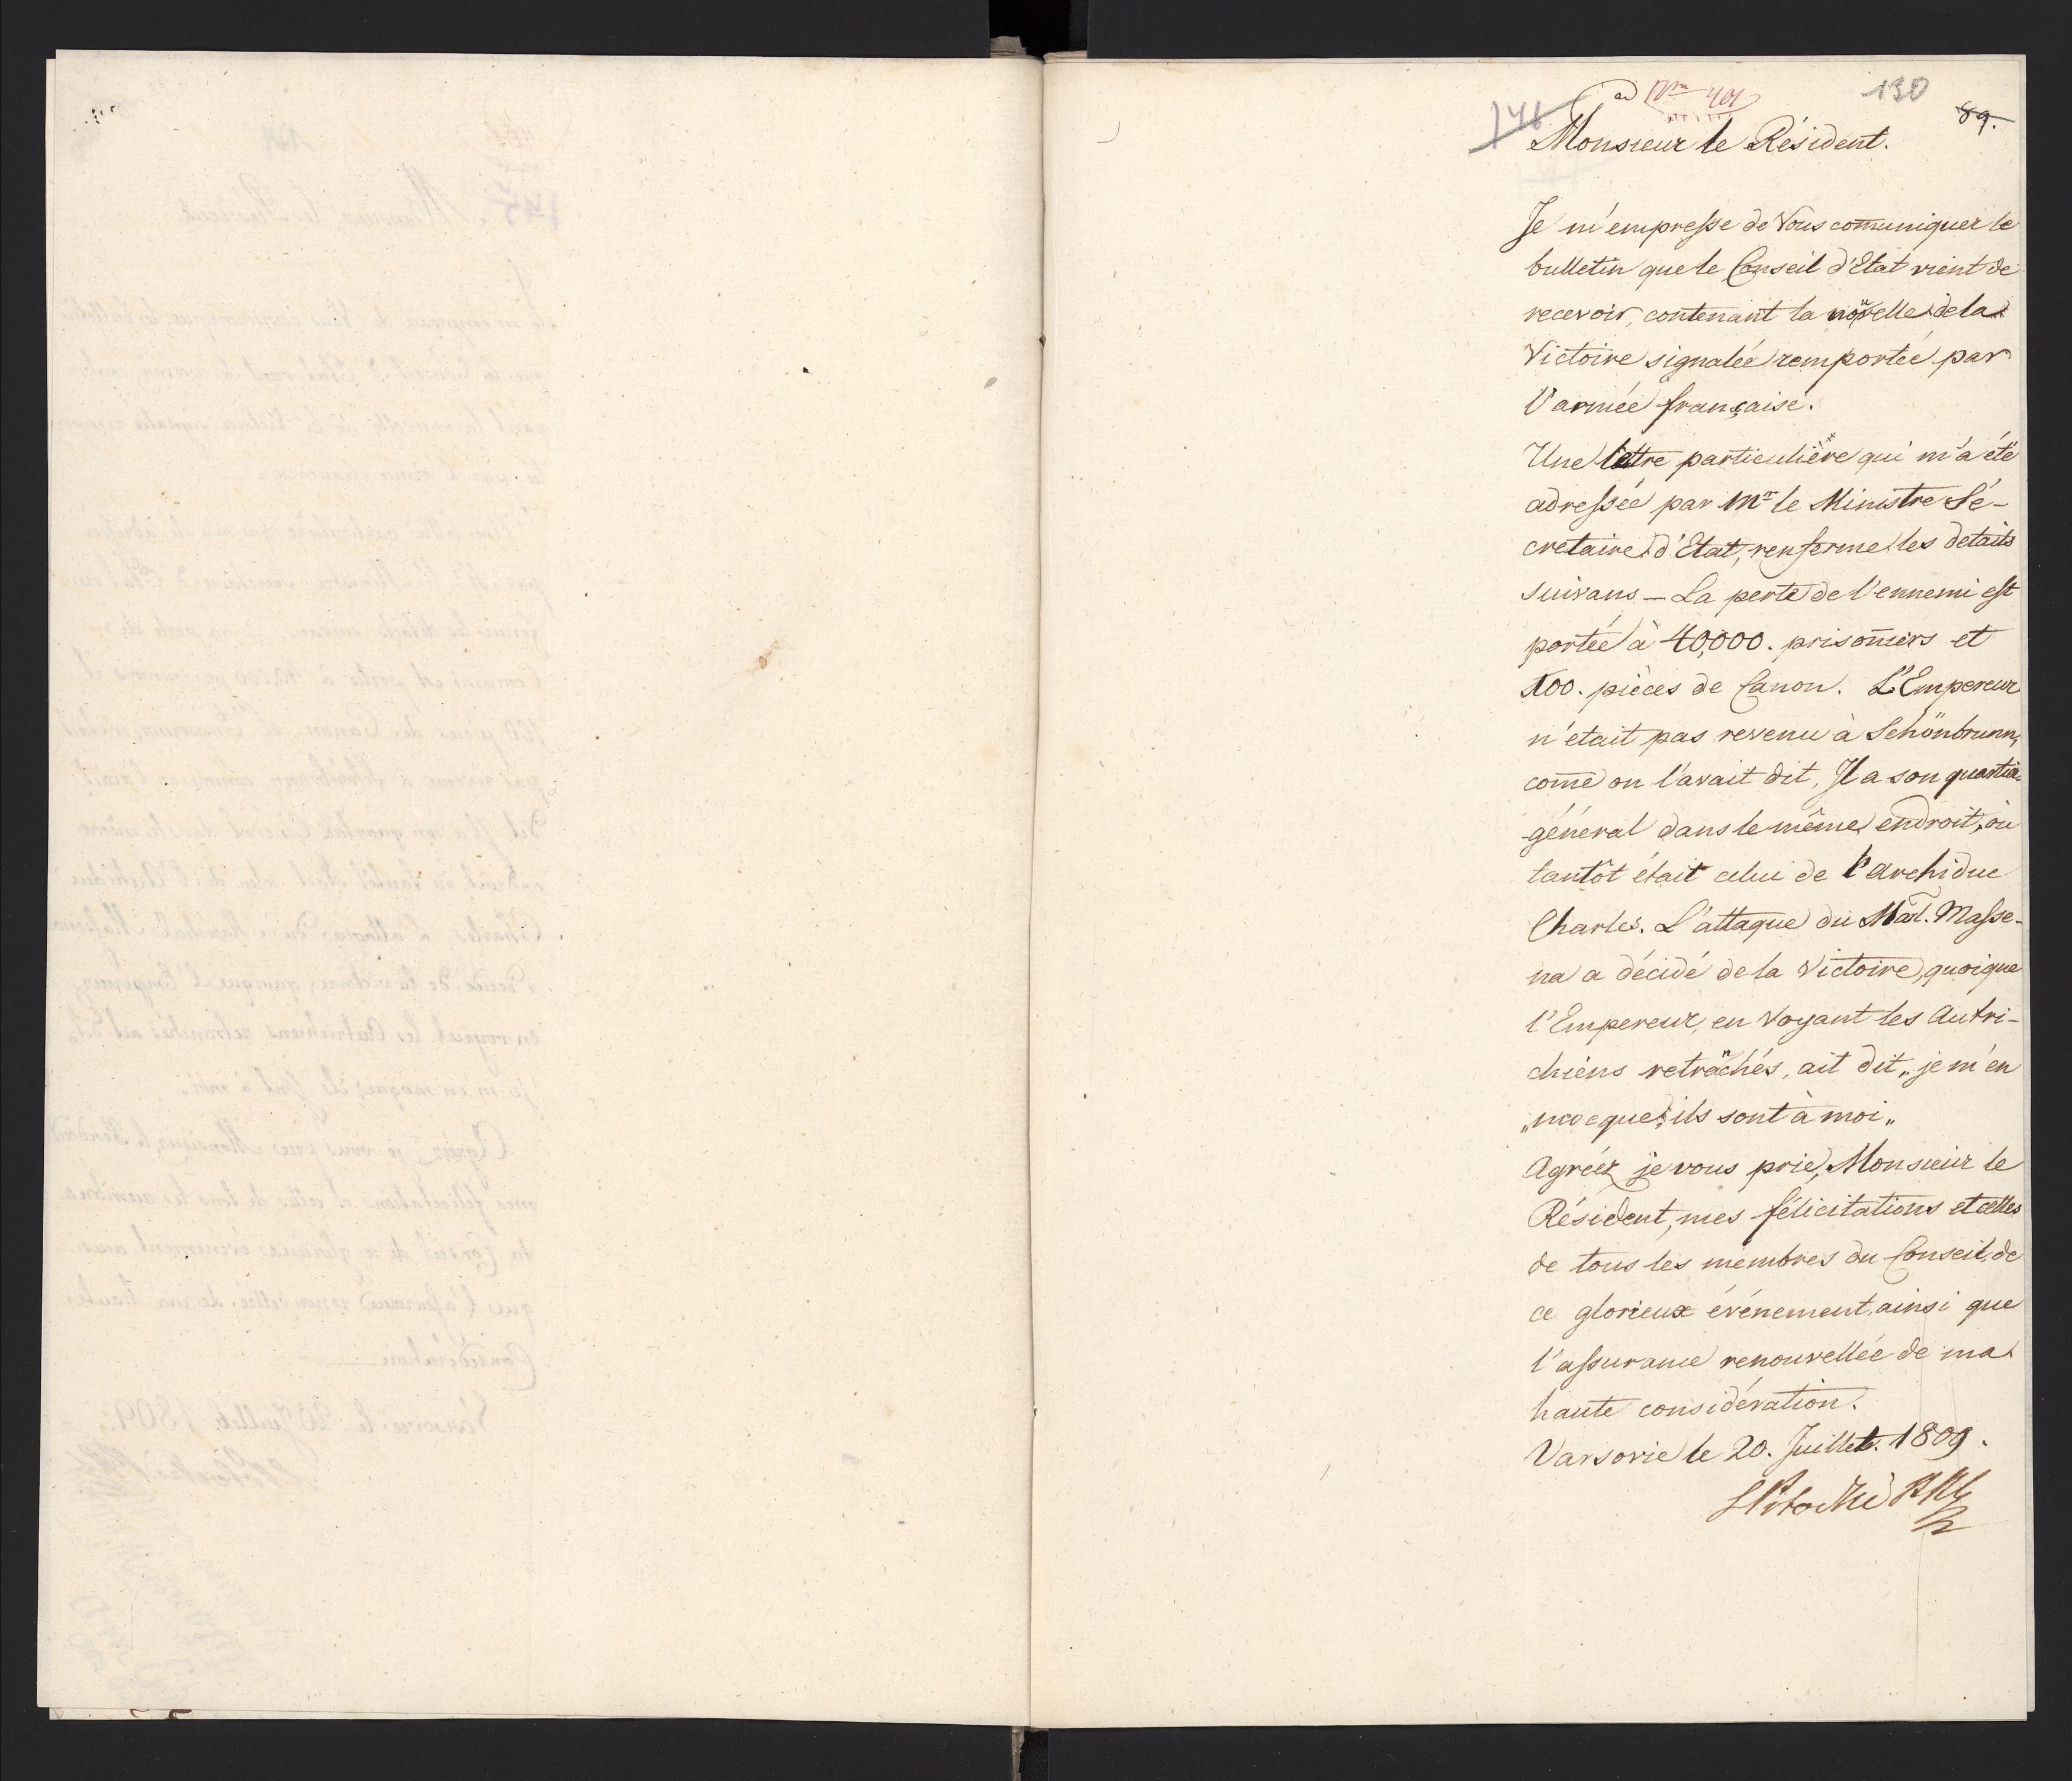 130
146
ad Nrm 401
89.
Monsieur le Résident.
Je m'empresse de Vous com̅uniquer le
bulletin que le Conseil d'Etat vient de
recevoir, contenant la nouvelle de la
Victoire signalée remportée par
l'armée française.
Une lettre particulière qui m'a été
adressée par Mr le Ministre Sé-
cretaire d'Etat, renferme les details
suivans — La perte de l'ennemi est
portée à 40,000. prison̅iers et
100. pièces de Canon. L'Empereur
n'était pas revenu à Schönbrunn,
com̅e on l'avait dit, Il a son quartier
général dans le même endroit, où
tantôt était celui de l'archiduc
Charles. L'attaque du Mal. Masse-
na a décidé de la Victoire, quoique
l'Empereur, en voyant les Autri-
chiens retranchés, ait dit „je m'en
„mocque, ils sont à moi„
Agréez je vous prie, Monsieur le
Résident, mes félicitations et celles
de tous les membres du Conseil, de
ce glorieux événement, ainsi que
l'assurance renouvellée de ma
haute considération.
Varsovie le 20. Juillet. 1809.